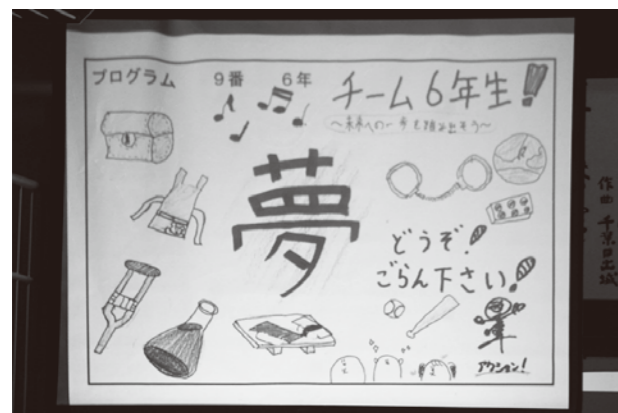 プログラム 9番 6年
チーム6年生!
〜未来への一歩を踏み出そう〜
夢
どうぞ!
ごらん下さい!
アクション!
作曲 千原日出城